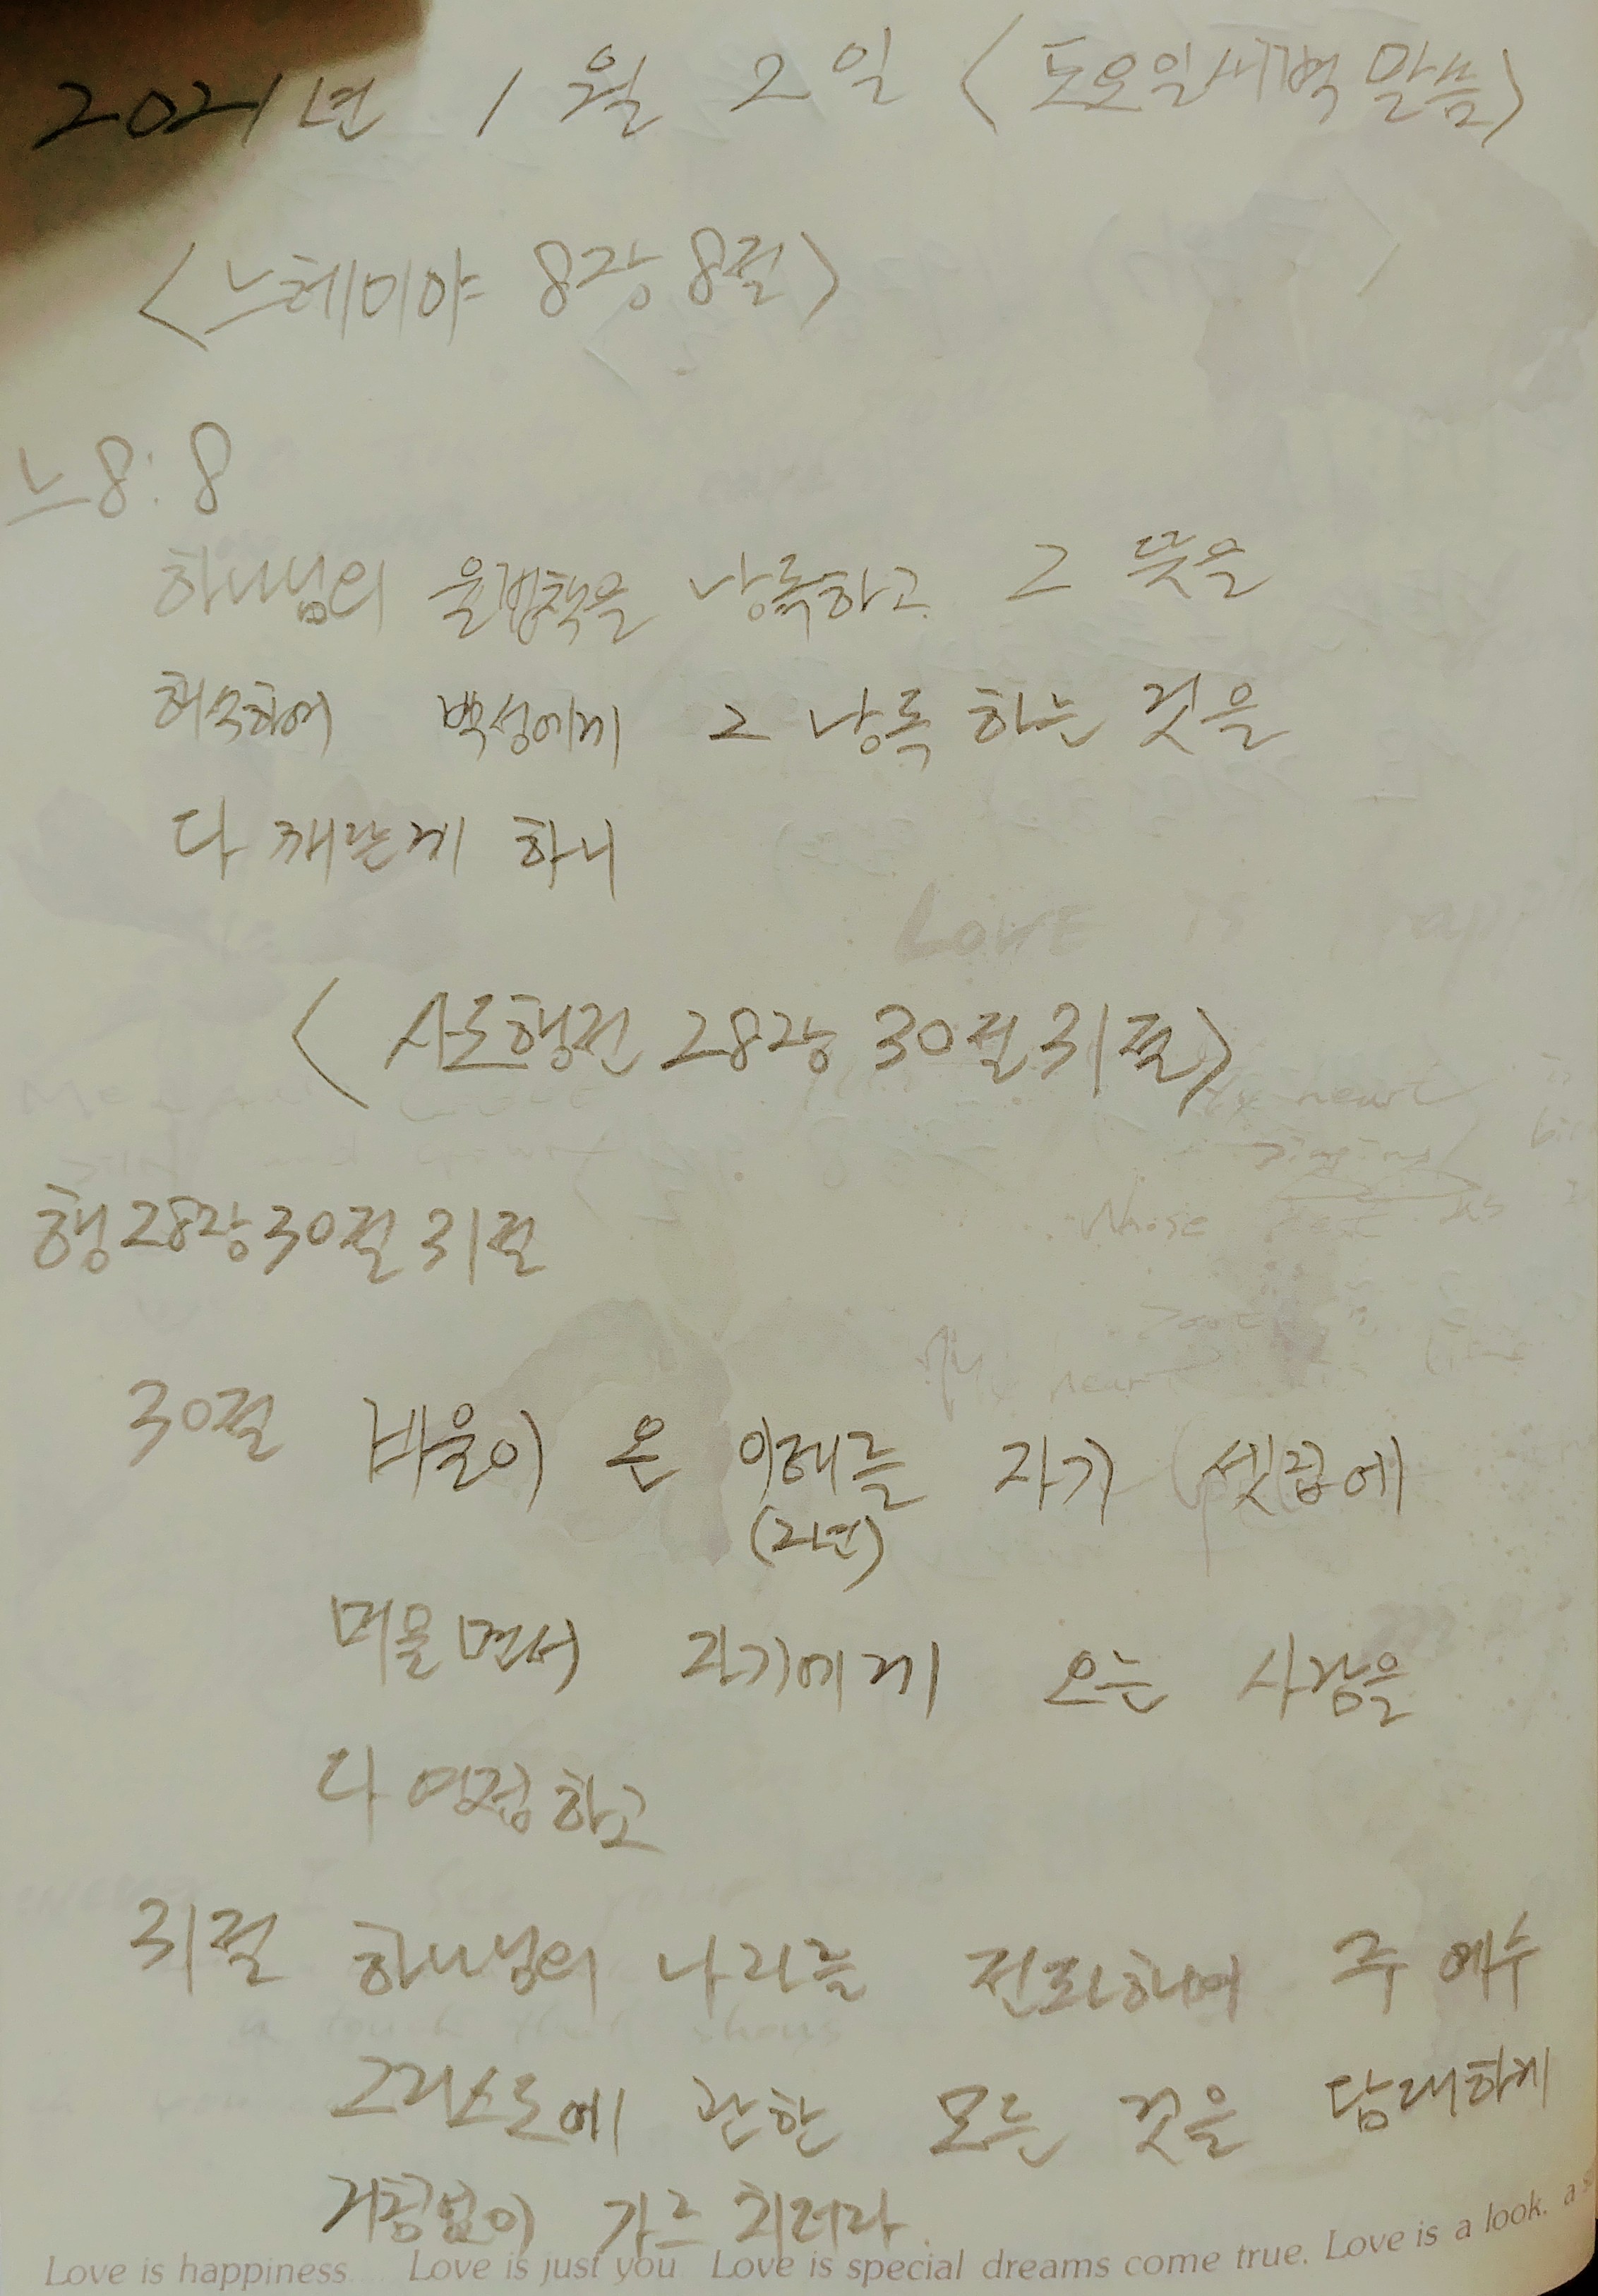 2021년 1월 2일 <토요일새벽 말씀>
<느헤미야 8장 8절>
느8:8
하나님의 율법책을 낭독하고 그 뜻을
해석하여 백성에게 그 낭독 하는 것을
다 깨닫게 하니
<사도행전 28장 30절 31절>
행28장 30절 31절
30절 바울이 온 이태를 자기 셋집에
(2년)
머물면서 자기에게 오는 사람을
다 영접하고
31절 하나님의 나라를 전파하며 주 예수
그리스도에 관한 모든 것을 담대하게
거침없이 가르치더라.
Love is happiness. Love is just you Love is special dreams come true. Love is a look. as